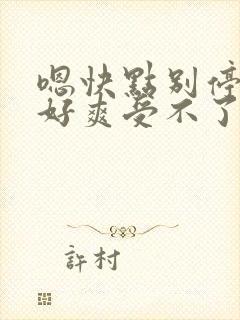 嗯快點别停
好爽受不了
許村